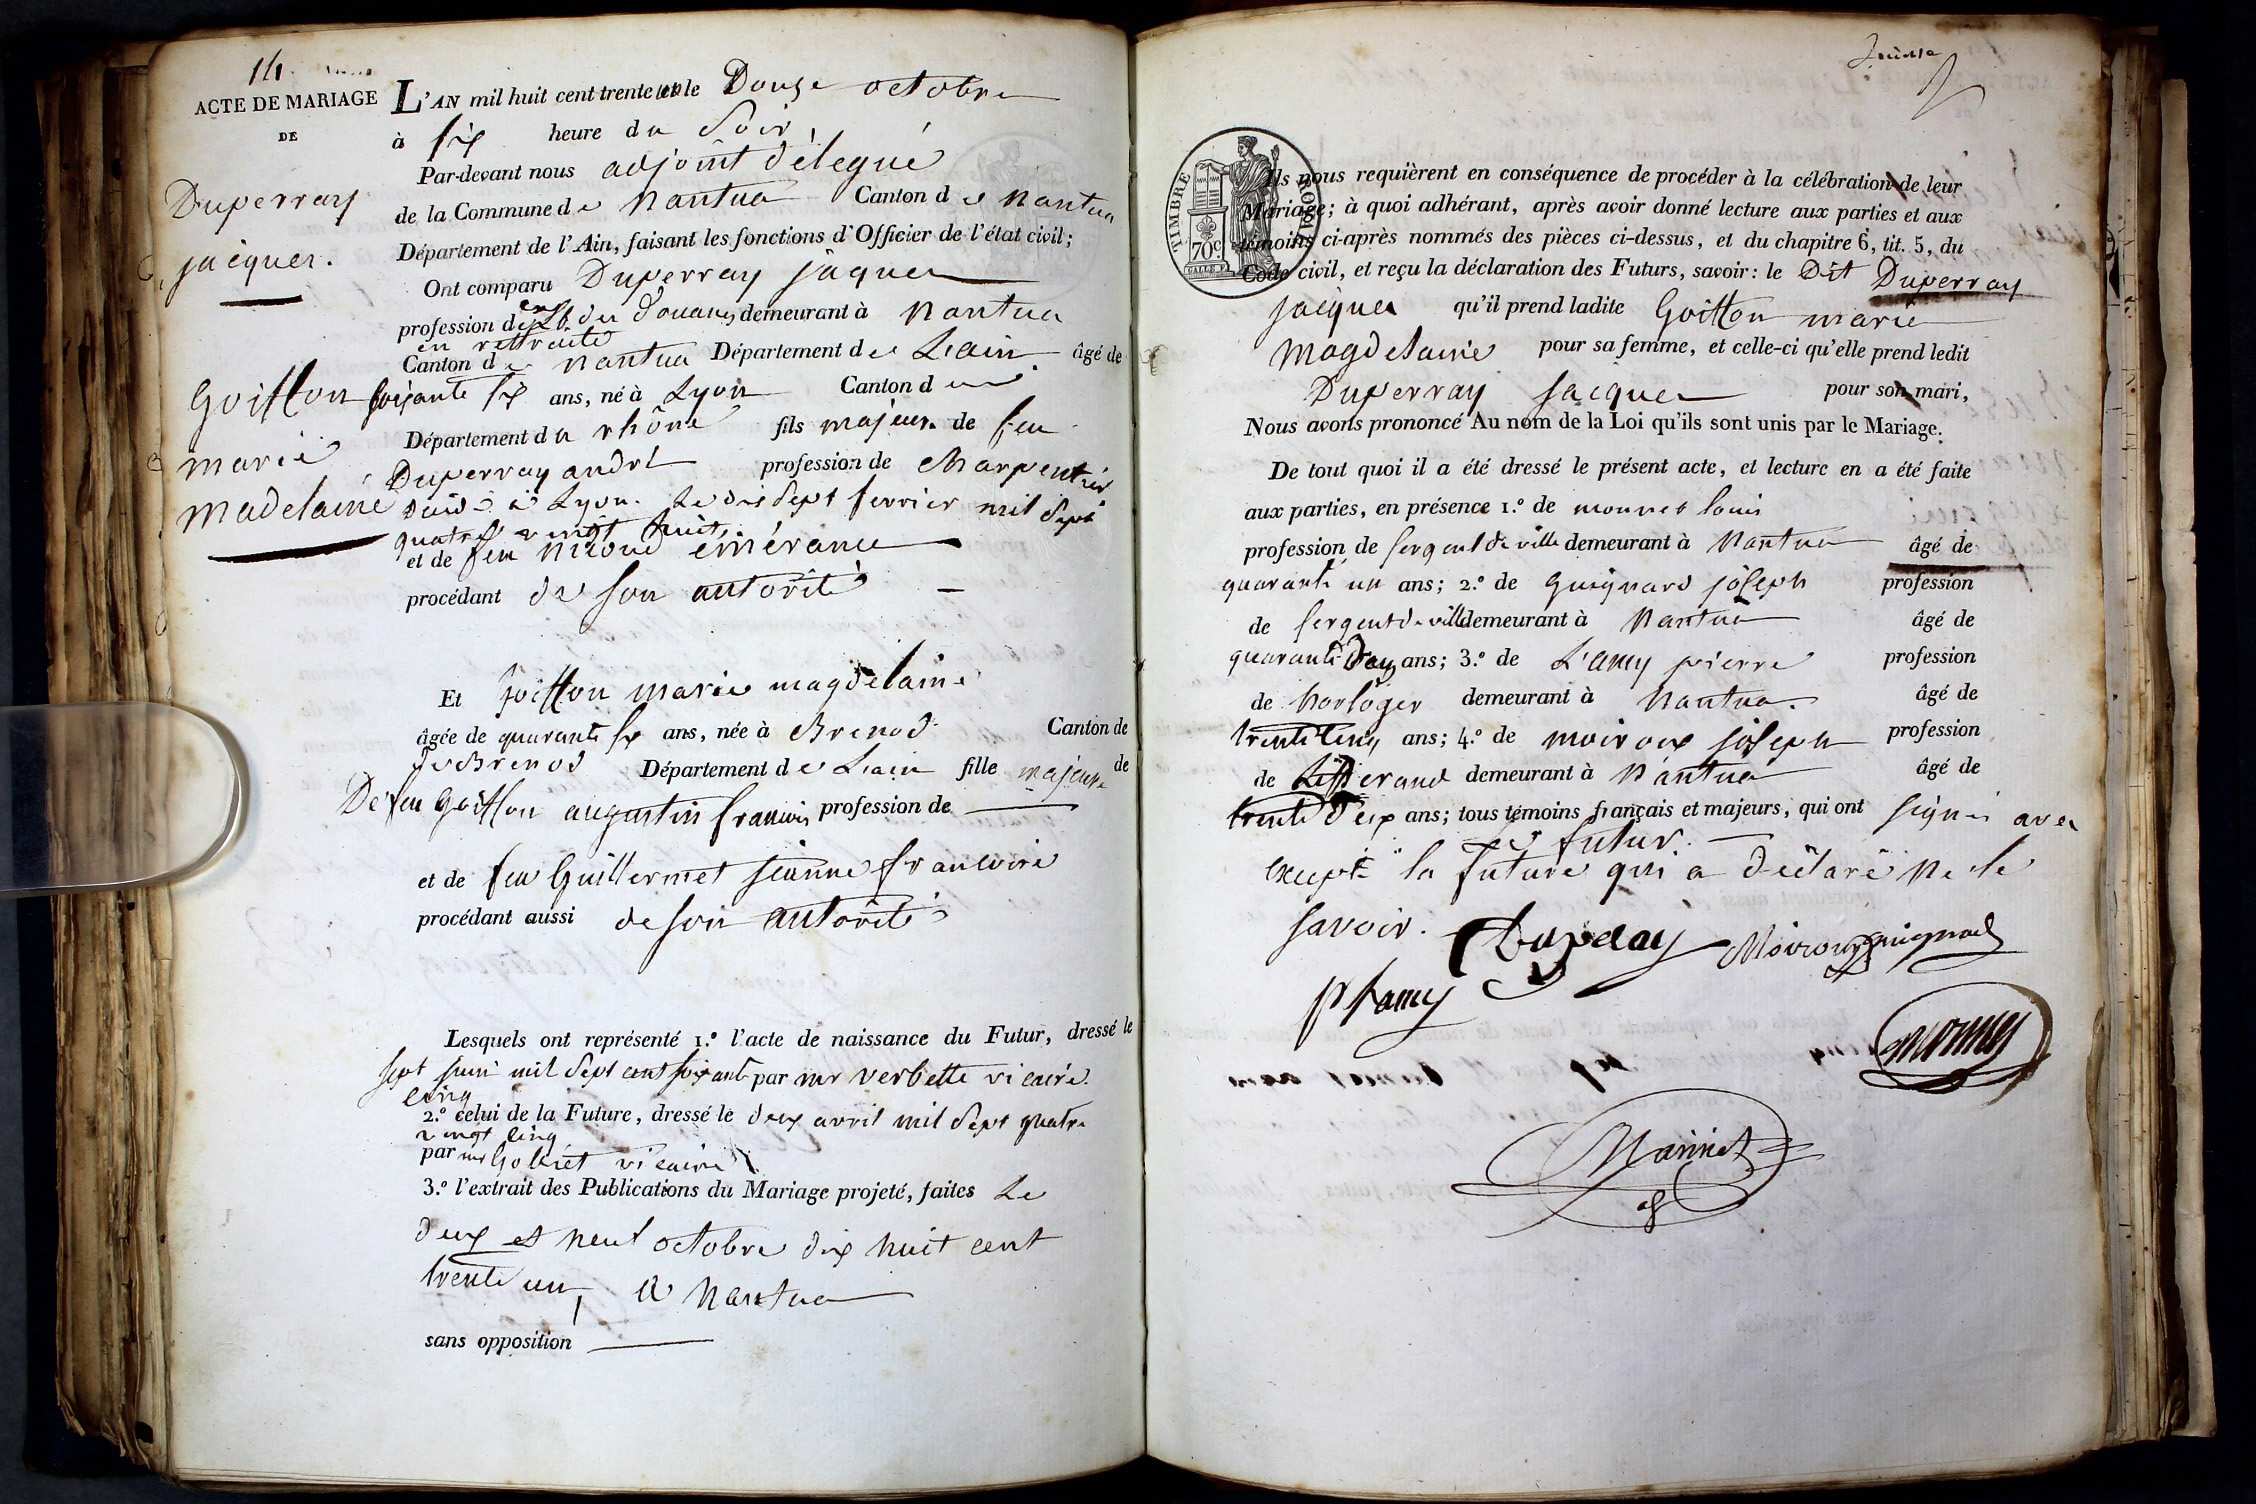 14
ACTE DE MARIAGE
DE
Duperray
jacques.
Goiffon
marie
madelaine
L'AN mil huit cent trente un le Douze octobre
à six heure du Soir
Par-devant nous adjoint délegué
de la Commune de Nantua Canton de Nantua
Département de l'Ain, faisant les fonctions d'Officier de l'état civil;
Ont comparu Duperray jaques
profession d des Douanes demeurant à Nantua
en rettraite
Canton de Nantua Département de L'ain âgé de
soixante six ans, né à Lyon Canton d
Département du rhône fils majeur de feu
Duperray andré profession de charpentier
à Lyon. Le dix Sept ferrier mil Sept
quatre vingt huit,
et de feu émérance
procédant de son autorité
Et goiffon marie magdelaine
âgée de quarante six ans, née à Brenod Canton de
de Brenod Département de L'ain fille majeure de
De feu goiffon augustin francois profession de
et de feu Guillermet jeanne francoise
procédant aussi de son autorité
Lesquels ont représenté 1.° l'acte de naissance du Futur, dressé le
sept juin mil Sept cent soixante par mr verbette vicaire.
cinq
2.° celui de la Future, dressé le deux avril mil Sept quatre
vingt cinq
par mr vicaire
3.° l'extrait des Publications du Mariage projeté, faites Le
deux et neuf octobre dix huit cent
trente un, a Nantua
sans opposition
TIMBRE ROYAL
70c
Ils nous requièrent en conséquence de procéder à la célébration de leur
Mariage; à quoi adhérant, après avoir donné lecture aux parties et aux
témoins ci-après nommés des pièces ci-dessus, et du chapitre 6, tit. 5, du
Code civil, et reçu la déclaration des Futurs, savoir: le Dit Duperray
jacques qu'il prend ladite Goiffon marie
magdelaine pour sa femme, et celle-ci qu'elle prend ledit
Duperray jacques pour son mari,
Nous avons prononcé Au nom de la Loi qu'ils sont unis par le Mariage.
De tout quoi il a été dressé le présent acte, et lecture en a été faite
aux parties, en présence 1.° de monnet louis
profession de sergent de ville demeurant à Nantua âgé de
quarante un ans; 2.° de guignard joseph profession
de sergent de ville demeurant à Nantua âgé de
quarante Douze ans; 3.° de L'amy pierre profession
de horloger demeurant à Nantua. âgé de
trente cinq ans; 4.° de moiroux joseph profession
de Lisserand demeurant à Nantua âgé de
trente deux ans; tous témoins français et majeurs, qui ont signés avec
le futur.
excepté la future qui a déclaré ne le
savoir.
Duperay Moiroux guignard
P Lamy
monnet